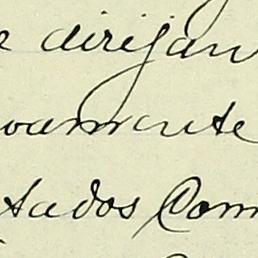 e dirijan
vamente
tados Com